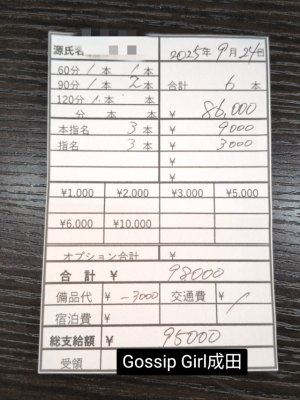 源氏名
2025年9月24日
60分 1本 1本
90分 1本 2本
合計 6本
120分 1本 本
分 本 ¥ 86,000
本指名 3本 ¥ 9000
指名 3本 ¥ 3000
¥
¥
¥1,000 ¥2,000 ¥3,000 ¥5,000
¥6,000 ¥10,000
オプション合計 ¥
合計 ¥ 98000
備品代 ¥ -3000 交通費 ¥ /
宿泊費 ¥ ¥
総支給額 ¥ 95000
受領
Gossip Girl成田